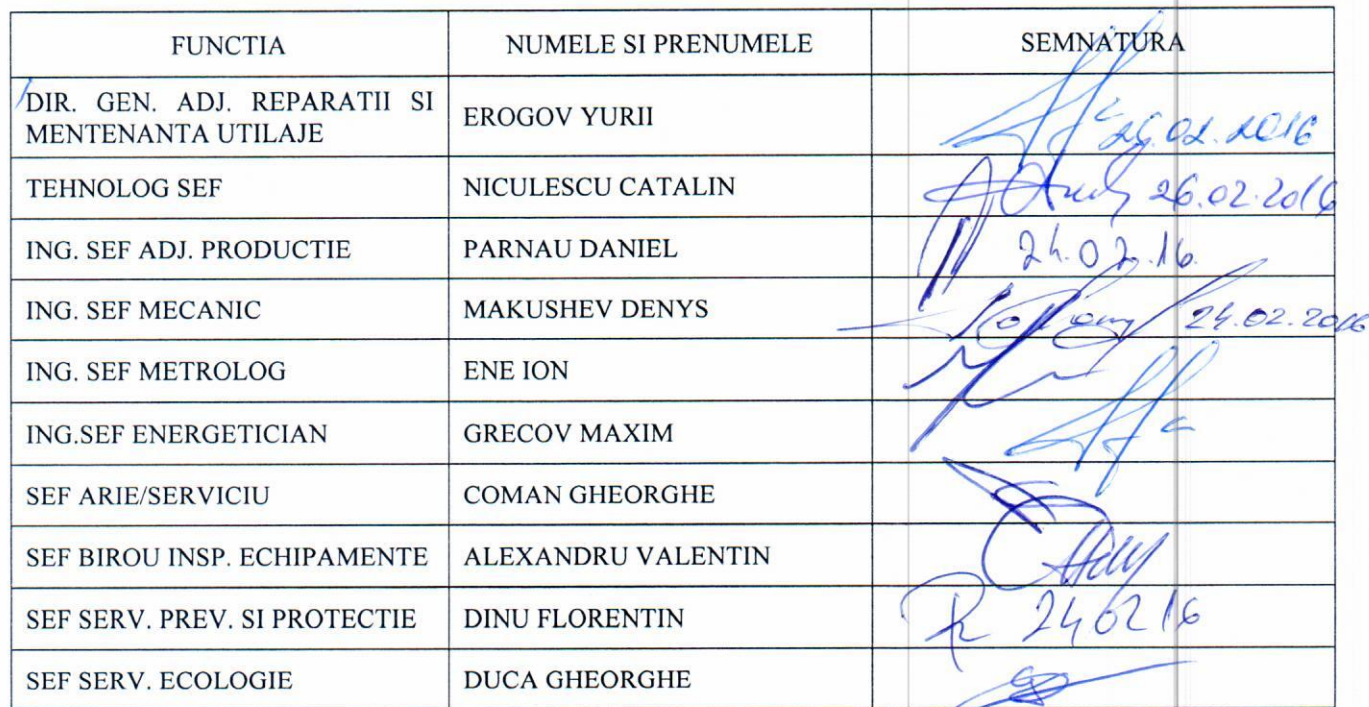 FUNCTIA NUMELE SI PRENUMELE SEMNATURA
DIR. GEN. ADJ. REPARATII SI
MENTENANTA UTILAJE
EROGOV YURII 2016
TEHNOLOG SEF NICULESCU CATALIN 26.02.2016
ING. SEF ADJ. PRODUCTIE PARNAU DANIEL 24.02.16
ING. SEF MECANIC MAKUSHEV DENYS 24.02.2016
ING. SEF METROLOG ENE ION
ING.SEF ENERGETICIAN GRECOV MAXIM
SEF ARIE/SERVICIU COMAN GHEORGHE
SEF BIROU INSP. ECHIPAMENTE ALEXANDRU VALENTIN
SEF SERV. PREV. SI PROTECTIE DINU FLORENTIN 240216
SEF SERV. ECOLOGIE DUCA GHEORGHE